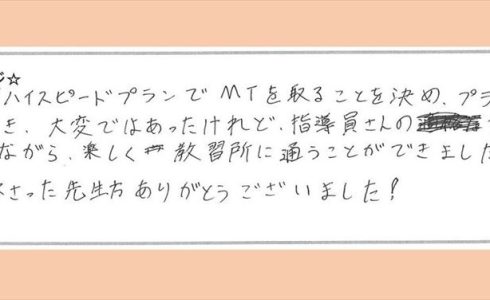 ジ☆
ハイスピードプランでMTを取ることを決め、プラ
き、大変ではあったけれど、指導員さんの
ながら、楽しく教習所に通うことができました
さった先生方ありがとうございました!